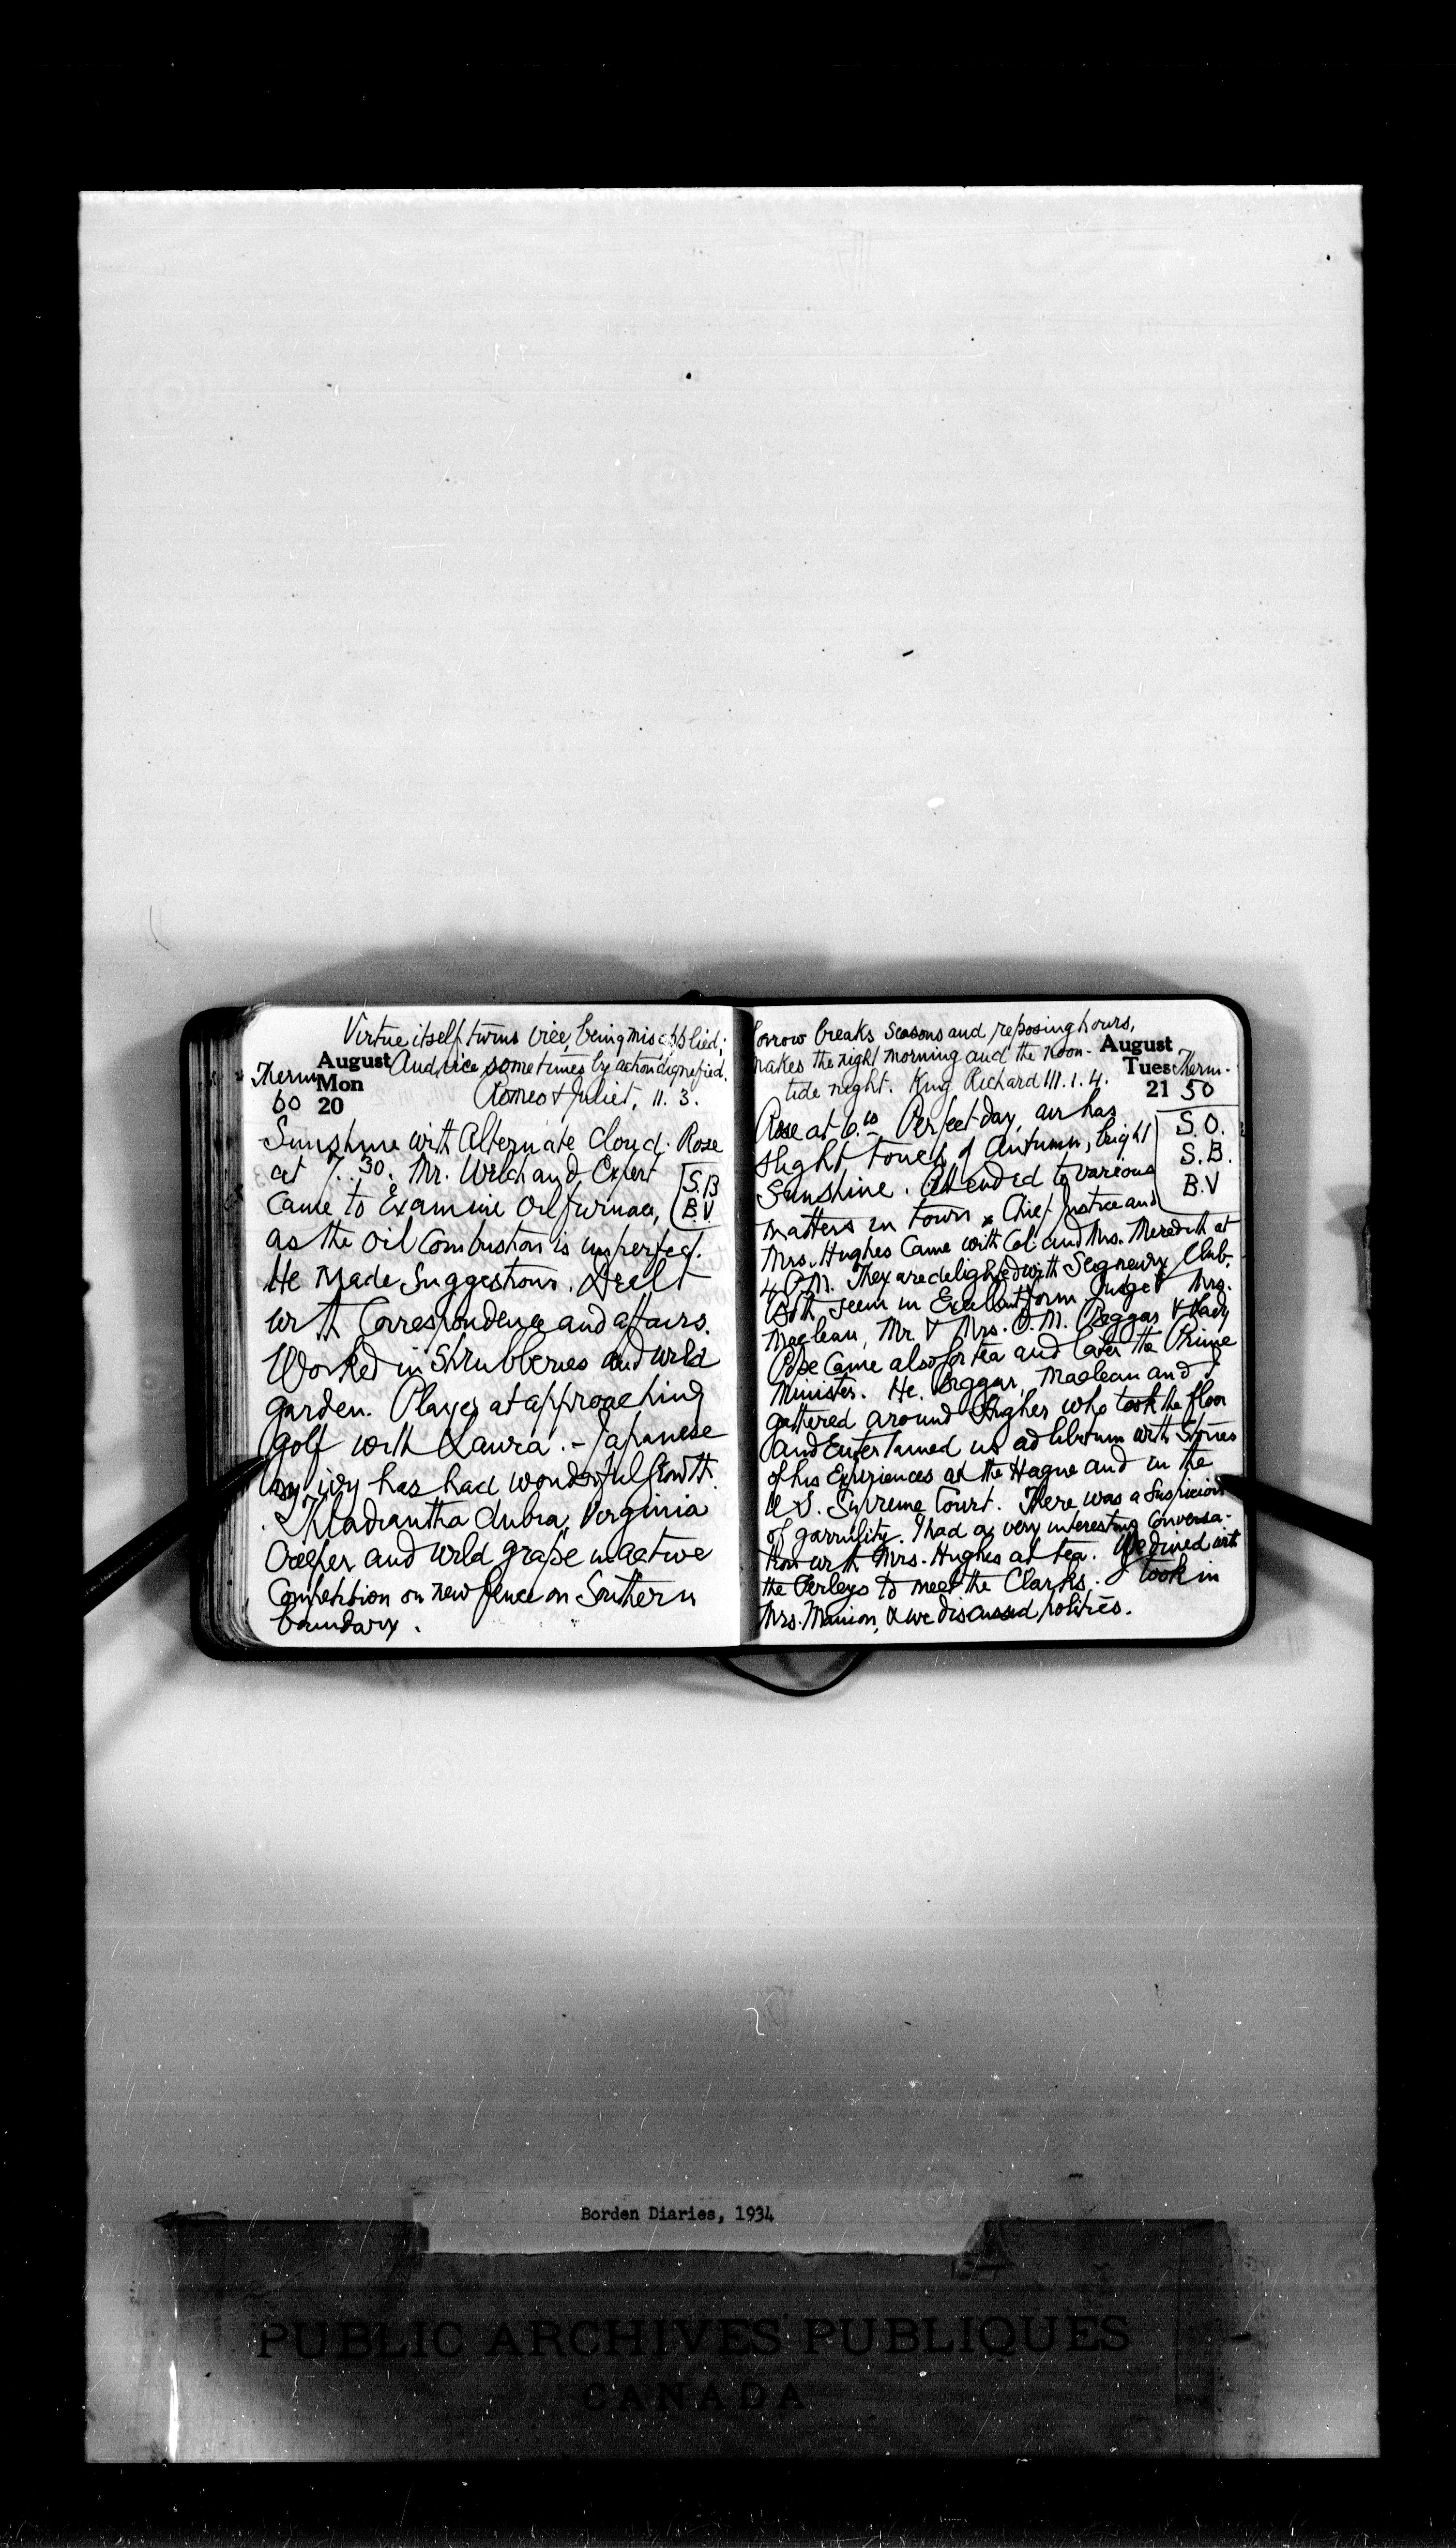 Virtue itself turns vice, being misapplied;
August And vice sometimes by action dignified.
Therm Mon Romeo & Juliet, 11. 3.
60 20
Sunshine with alternate cloud. Rose
at 7.30. Mr. Welch and Expert S.B
came to Examine Oil furnace, B.V.
as the oil combustion is imperfect.
He made suggestions. Dealt
with Correspondence and affairs.
Worked in shrubberies and wild
garden. Played at approaching
golf with Laura. - Japanese
ivy has had wonderful growth.
Virginia
Creeper and wild grape in active
Competition on new fence on Southern
boundary.
Sorrow breaks seasons and reposing hours,
makes the night morning and the noon- August
tide night. King Richard 111. 1. 4. Tues Therm.
21 50
Rose at 6.10 Perfect day, air has S.O.
slight touch of Autumn, bright S.B.
Sunshine. Attended to various B.V
matters in town. Chief Justice and
Mrs. Hughes came with Col. and Mrs. Meredith at
4 P.M. They are delighted with Seigneury Club.
Both seem in Excellent form. Judge & Mrs.
Maclean, Mr. & Mrs. O.M. Biggar & Lady
Pope came also for tea and later the Prime
Minister. He, Biggar, Maclean and I
gathered around Hughes who took the floor
and Entertained us ad libitum with stories
of his Experiences at the Hague and in the
U.S. Supreme Court. There was a suspicion
of garrulity. I had a very interesting conversa-
tion with Mrs. Hughes at tea. We dined with
the Perleys to meet the Clarks. I took in
Mrs. Manion, & we discussed politics.
Borden Diaries, 1934
PUBLIC ARCHIVES PUBLIQUES
CANADA